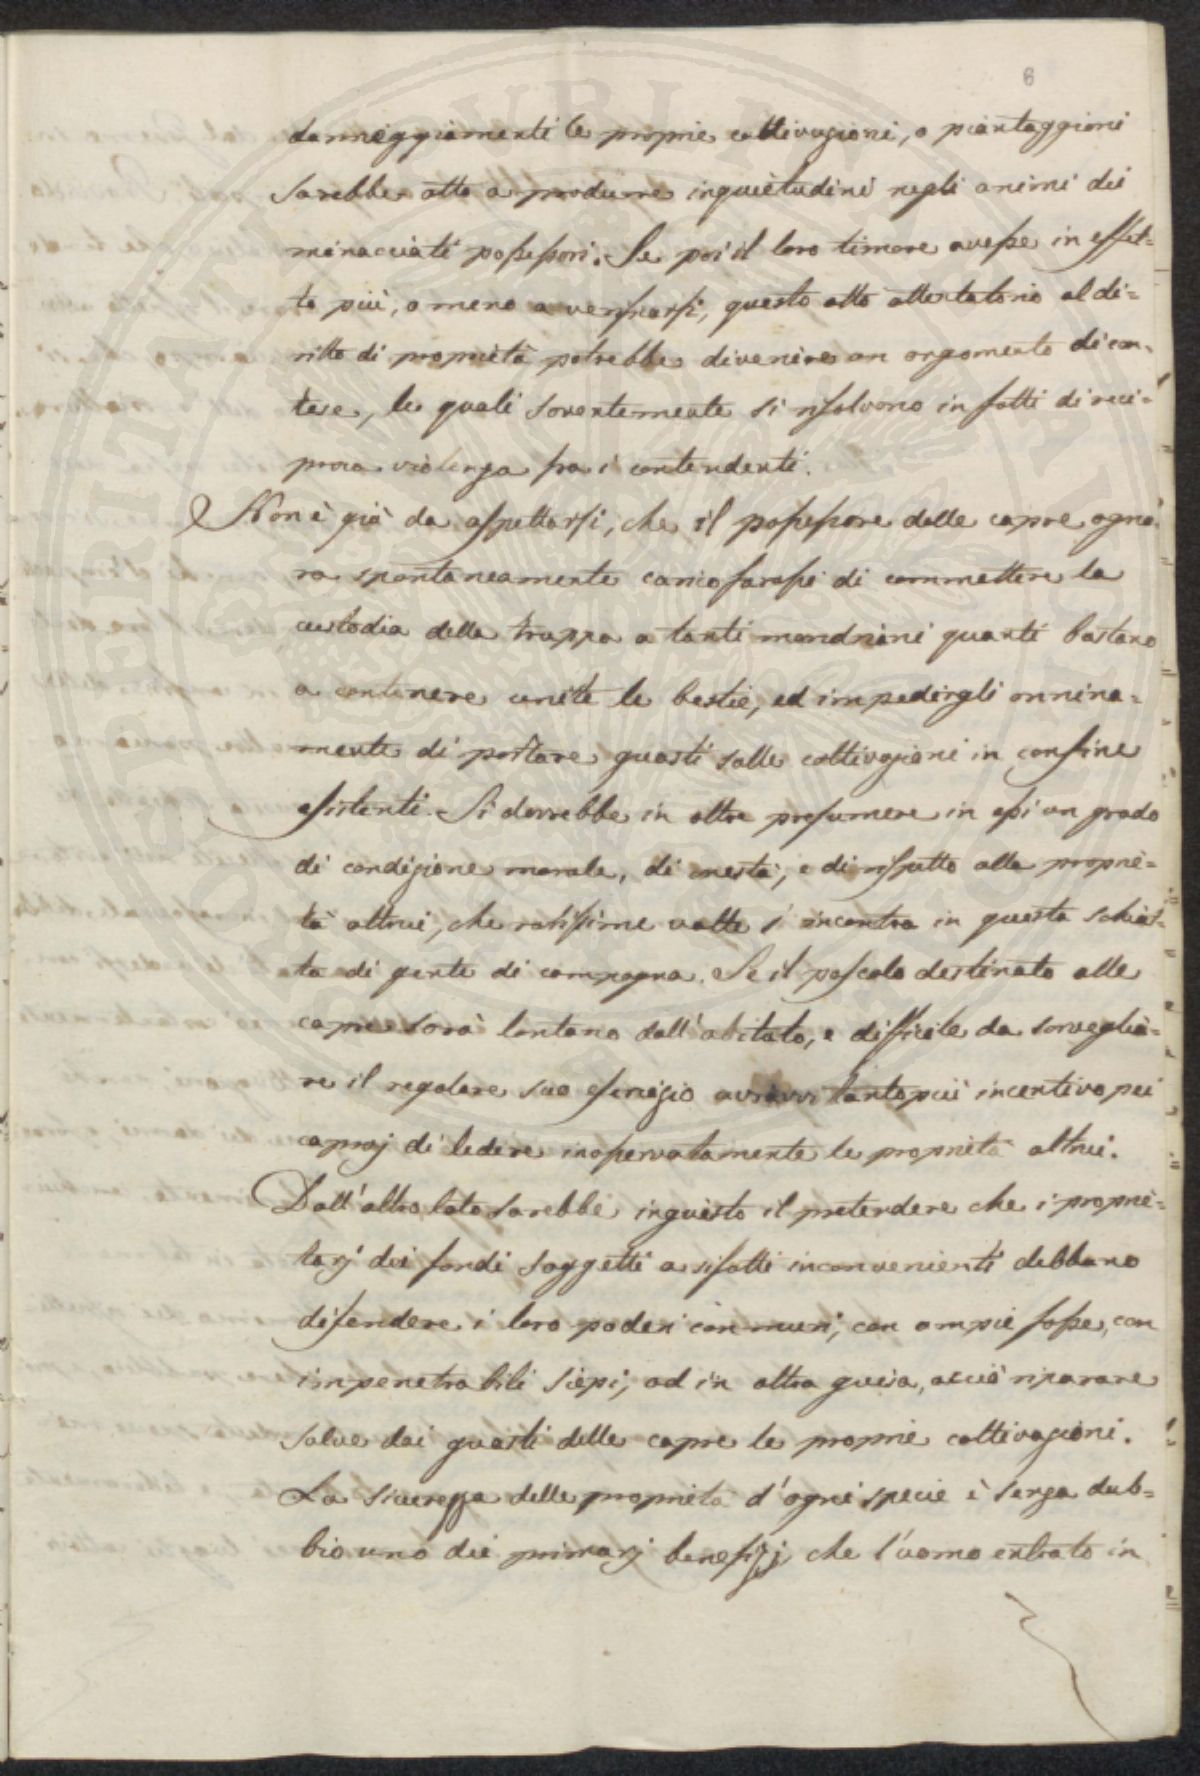 6
danneggiamenti le proprie coltivazioni, o piantaggioni
sarebbe atto a produrre inquietudini negli animi dei
minacciati possessori. Se poi il loro timore avesse in effet=
to più, o meno a verificarsi, questo atto attentatorio al di=
ritto di proprietà potrebbe divenire un argomento di con=
tese, le quali soventemente si risolvono in fatti di reci=
proca violenza fra i contendenti.
Non è già da aspettarsi, che il possessore delle capre ogno=
ra spontaneamente caricosarassi di commettere la
custodia della truppa a tanti mandriani quanti bastano
a contenere unite le bestie, ed impedirgli onnina=
mente di portare guasti sulle coltivazioni in confine
esistenti. Si dovrebbe in oltre presumere in essi un grado
di condizione morale, di onestà, e di rispetto alla proprie=
tà altrui, che rarissime volte s'incontra in questa schiat=
ta di gente di campagna. Se il pascolo destinato alle
capre sarà lontano dall'abitato, e difficile da sorveglia=
re il regolare suo esercizio avravvi tanto più incentivo pei
capraj di ledere inosservatamente le proprietà altrui.
Dall'altro lato sarebbe ingiusto il pretendere che i proprie=
tarj dei fondi soggetti a sifatti inconvenienti debbano
difendere i loro poderi con muri, con ampie fosse, con
impenetrabili siepi, od in altra guisa, acciò riparare
salve dai guasti delle capre le proprie coltivazioni.
La sicurezza delle proprietà d'ogni specie è senza dub=
bio uno dei primarj benefizj che l'uomo entrato in